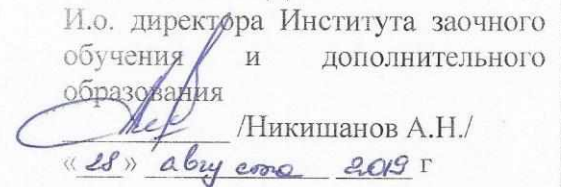 И.о. директора Института заочного
обучения и дополнительного
образования
/Никишанов А.Н./
«28» августа 2019 г